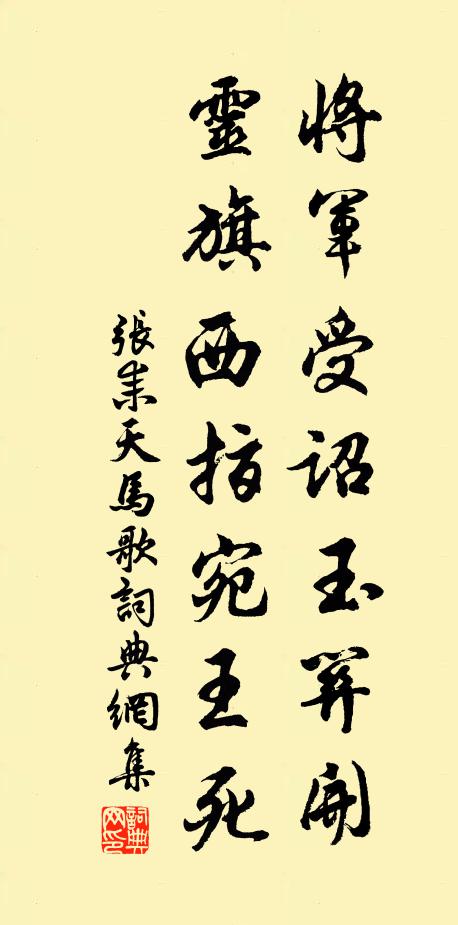 將軍受詔玉關開
靈旗西指宛王死
張耒天馬歌詞典網集
詞典网印